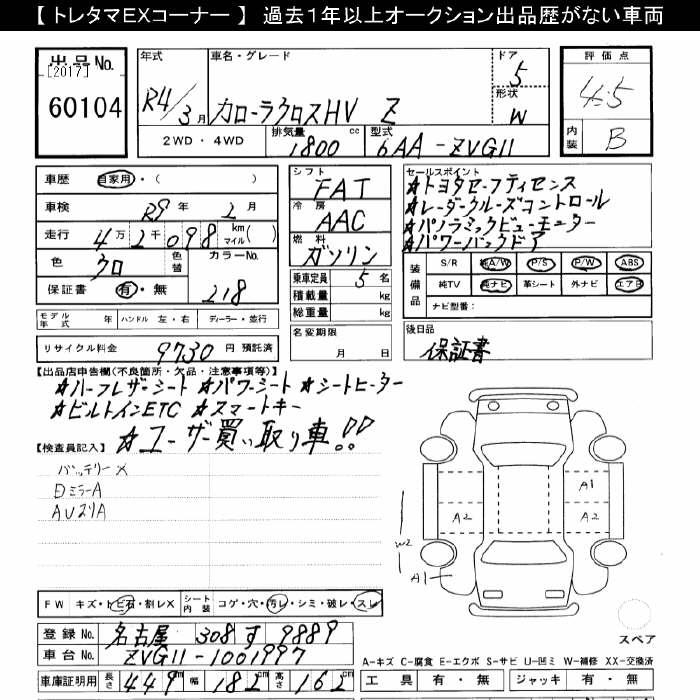 【 トレタマEXコーナー 】 過去1年以上オークション出品歴がない車両
出品No.
[2017]
60104
年式
R4/3月
車名・グレード
カローラクロスHV Z
ドア
5
形状
W
2WD・4WD
排気量
1800 cc
型式
6AA-ZVG11
評価点
4.5
内装
B
車歴 自家用・( )
車検 R9年 2月
走行 4万2千098 km マイル( )
色 クロ
色替
カラーNo.
218
保証書 有・無
モデル年式 年 ハンドル 左・右 ディーラー・並行
リサイクル料金 9730 円 預託済
シフト
FAT
冷房
AAC
燃料
ガソリン
乗車定員 5 名
積載量 kg
総重量 kg
名変期限
月 日
セールスポイント
☆トヨタセーフティセンス
☆レーダークルーズコントロール
☆パノラミックビューモニター
☆パワーバックドア
装備品
S/R 純A/W P/S P/W ABS
純TV 純ナビ 革シート 外ナビ エアB
ナビ型番:
後日品
保証書
【出品店申告欄(不良箇所・欠品・注意事項等)】
☆ハーフレザーシート ☆パワーシート ☆シートヒーター
☆ビルトインETC ☆スマートキー
☆ユーザー買い取り車!!
【検査員記入】
バッテリーX
DミラーA
A1
A2
A2
W2
A1
FW キズ・トビ石・割レX
シート内装 コゲ・穴・汚レ・シミ・破レ・スレ
スペア
登録No. 名古屋 308 す 9889
車台No. ZVG11-1001997
車庫証明用 長さ 449 cm 幅 182 cm 高さ 162 cm
A-キズ C-腐食 E-エクボ S-サビ U-凹ミ W-補修 XX-交換済
工具 有・無 ジャッキ 有・無